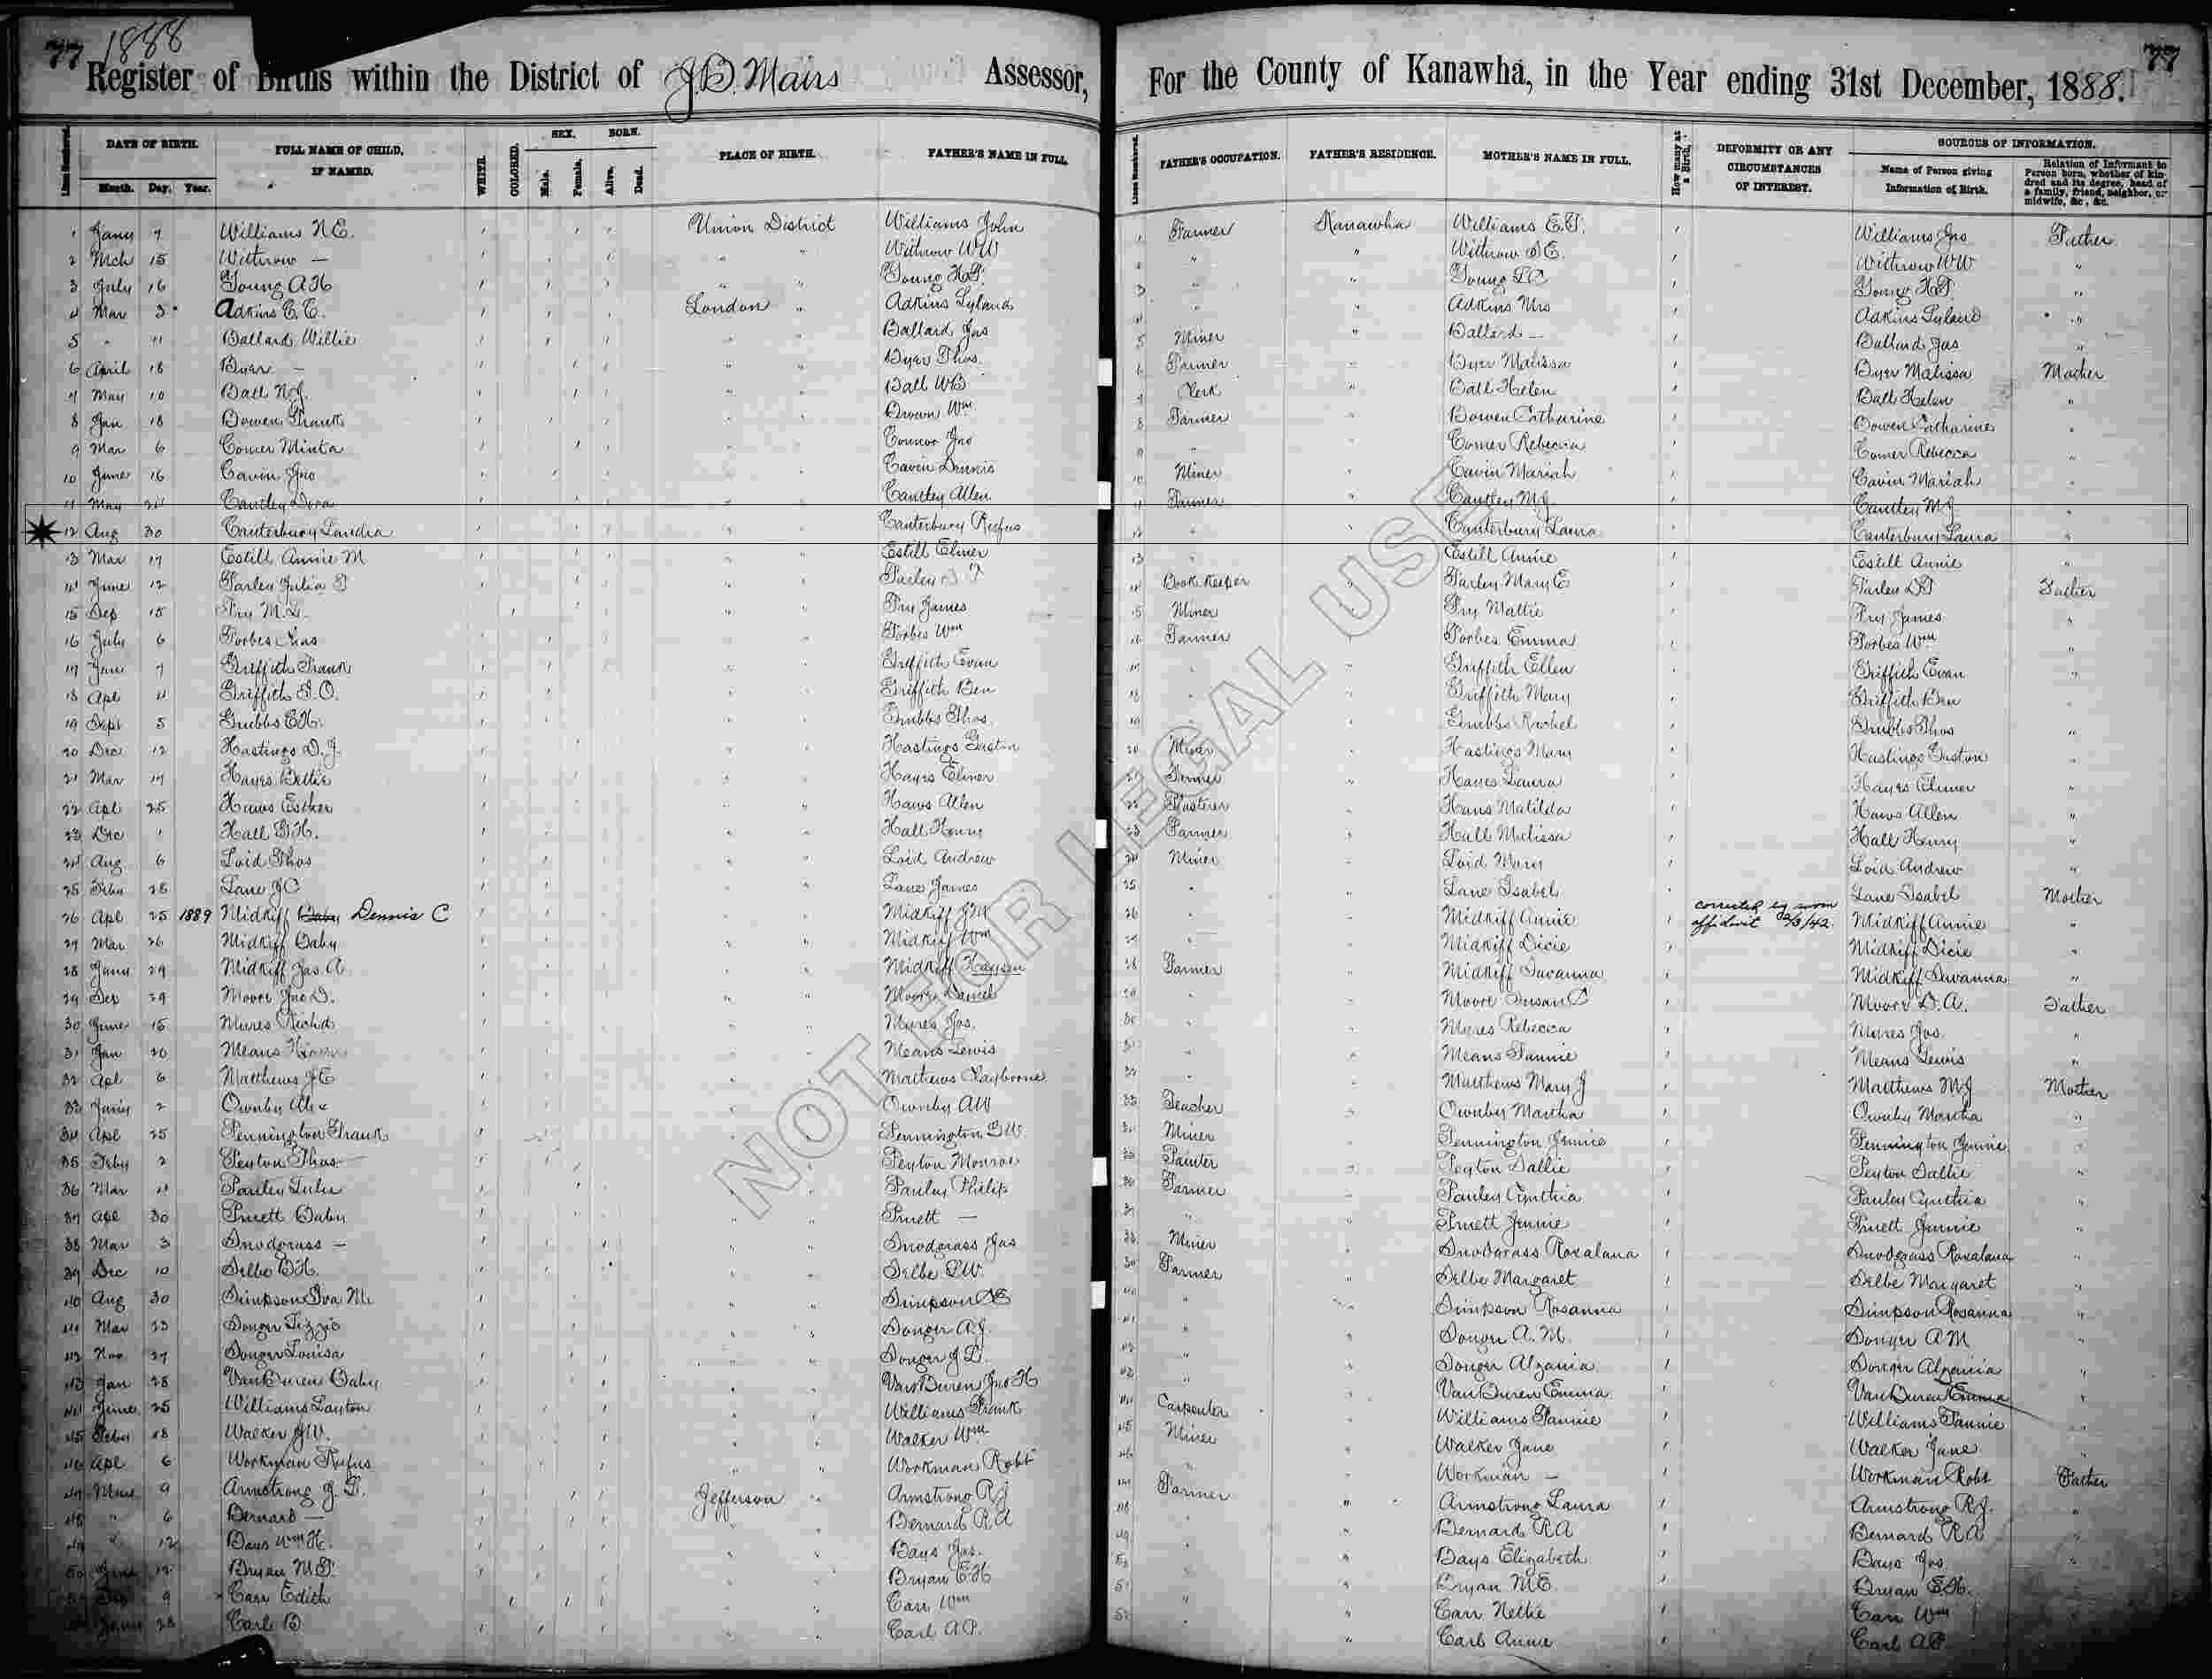 77 1888 77
Register of Births within the District of J.B. Mairs Assessor, For the County of Kanawha, in the Year ending 31st December, 1888.
Lines Numbered. DATE OF BIRTH. Month. Day. Year. FULL NAME OF CHILD, IF NAMED. WHITE. COLORED. SEX. Male. Female. BORN. Alive. Dead. PLACE OF BIRTH. FATHER'S NAME IN FULL. Lines Numbered. FATHER'S OCCUPATION. FATHER'S RESIDENCE. MOTHER'S NAME IN FULL. How many at a Birth. DEFORMITY OR ANY CIRCUMSTANCES OF INTEREST. SOURCES OF INFORMATION. Name of Person giving Information of Birth. Relation of Informant to Person born, whether of kindred and its degree, head of a family, friend, neighbor, or midwife, &c., &c.
1 Jany 7 Williams N.E. Union District Williams John Farmer Kanawha Williams E.F. Williams Jno Father
2 Mch 15 Withrow — " " Withrow WW " " Withrow S E. Withrow WW "
3 July 16 Young A H " " Young H.F. " " Young L C Young H.F. "
4 Mar 3 Adkins C.C. London " Adkins Lyland " Adkins Mrs Adkins Lyland "
5 " 11 Ballard Willie " " Ballard Jas Miner " Ballard — Ballard Jas "
6 April 18 Byer — " " Byer Thos Farmer " Byer Malissa Byer Malissa Mother
7 May 10 Ball N.J. " " Ball WB Clerk " Ball Helen Ball Helen "
8 Jan 18 Bowen Frank " " Bowen Wm Farmer " Bowen Catharine Bowen Catharine "
9 Mar 6 Comer Minta " " Connor Jno " " Comer Rebecca Comer Rebecca "
10 June 16 Cavin Jno " " Cavin Dennis Miner " Cavin Mariah Cavin Mariah "
11 May 24 Cantley Dora " " Cantley Allen Farmer " Cantley M J Cantley M J "
12 Aug 30 Canterbury Landra " " Canterbury Rufus " " Canterbury Laura Canterbury Laura "
13 Mar 17 Estill Annie M " " Estill Elmer " Estill Annie Estill Annie "
14 June 12 Farley Julia " " Farley Book Keeper " Farley Mary E Farley Father
15 Sep 15 Fry M.L. " " Fry James Miner " Fry Mattie Fry James "
16 July 6 Forbes Chas " " Forbes Wm Farmer " Forbes Emma Forbes Wm "
17 Jan 7 Griffith Frank " " Griffith Evan " " Griffith Ellen Griffith Evan "
18 Apl 11 Griffith S.O. " " Griffith Ben " " Griffith Mary Griffith Ben "
19 Sept 5 Grubbs E H. " " Grubbs Thos. " " Grubbs Rachel Grubbs Thos "
20 Dec 12 Hastings D.J. " " Hastings Gaston Miner " Hastings Mary Hastings Gaston "
21 Mar 17 Hayes Bettie " " Hayes Elmer Farmer " Hayes Laura Hayes Elmer "
22 Apl 25 Haws Esther " " Haws Allen Plasterer " Haws Matilda Haws Allen "
23 Dec 1 Hall G.H. " " Hall Henry Farmer " Hall Malissa Hall Henry "
24 Aug 6 Loid Thos " " Loid Andrew Miner " Loid Mary Loid Andrew "
25 Feby 28 Lane J C " " Lane James " " Lane Isabel Lane Isabel Mother
26 Apl 25 1889 Midkiff Baby Dennis C " " Midkiff J M " " Midkiff Annie corrected by sworn affidavit 2/3/42 Midkiff Annie "
27 Mar 26 Midkiff Baby " " Midkiff Wm " " Midkiff Dicie Midkiff Dicie "
28 Jany 29 Midkiff Jas A. " " Midkiff Farmer " Midkiff Savanna Midkiff Savanna "
29 Sep 29 Moore Jno D. " " Moore Daniel " " Moore Susan C Moore D. A. Father
30 June 15 Mures Richd " " Mures Jos. " " Mures Rebecca Mures Jos. "
31 Jan 20 Means " " Means Lewis " " Means Fannie Means Lewis "
32 Apl 6 Matthews J E " " Mathews Clayborne " " Matthews Mary J Matthews M J Mother
33 Jany 2 Ownby Alex " " Ownby AW Teacher " Ownby Martha Ownby Martha "
34 Apl 25 Pennington Frank " " Pennington G W. Miner " Pennington Jennie Pennington Jennie "
35 Feby 2 Peyton Thos. " " Peyton Monroe Painter " Peyton Sallie Peyton Sallie "
36 Mar 11 Pauley Lulu " " Pauley Philip Farmer " Pauley Cynthia Pauley Cynthia "
37 Apl 30 Pruett Baby " " Pruett — " " Pruett Jennie Pruett Jennie "
38 Mar 3 Snodgrass — " " Snodgrass Jas Miner " Snodgrass Roxalana Snodgrass Roxalana "
39 Dec 10 Selbe B H. " " Selbe P.W. Farmer " Selbe Margaret Selbe Margaret "
40 Aug 30 Simpson Iva M. " " Simpson " " Simpson Rosanna Simpson Rosanna "
41 Mar 23 Songer Lizzie " " Songer A J. " " Songer A. M. Songer A M "
42 Nov 27 Songer Louisa " " Songer J L. " " Songer Alzania Songer Alzania "
43 Jan 28 VanBuren Baby " " VanBuren Jno H " " VanBuren Emma VanBuren Emma "
44 June 25 Williams Layton " " Williams Frank Carpenter " Williams Fannie Williams Fannie "
45 Feby 18 Walker J W. " " Walker Wm Miner " Walker Jane Walker Jane "
46 Apl 6 Workman Rufus " " Workman Robt " " Workman — Workman Robt Father
47 9 Armstrong J. Jefferson " Armstrong R J Farmer " Armstrong Laura Armstrong R.J. "
48 " 6 Bernard — " " Bernard R A " " Bernard R A Bernard R A "
49 " 12 Bays Wm H. " " Bays Jas. " " Bays Elizabeth Bays Jas "
50 June 12 Bryan M. " " Bryan E H " " Bryan M E. Bryan E H. "
51 9 Carr Edith " " Carr Wm " " Carr Nettie Carr Wm "
Jany 28 Carl B " " Carl A.P. " Carl Annie Carl A P
NOT FOR LEGAL USE